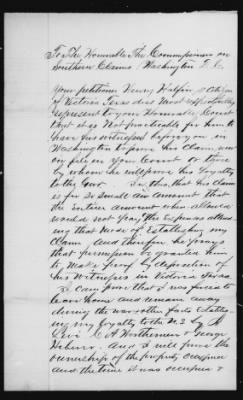 To The Honorable The Commissioners on
Southern Claims, Washington D. C.
Your petitioner Henry Halfin a citizen
of Victoria Texas does most respectfully
represent to your Honorable Court
that it is not practicable for him to
have his witnesses before you in
Washington to prove his claim now
on file in your Court or those
by whom he will prove his loyalty
to the Gov. that his claim
is for so small an amount that
the entire amount when allowed
would not pay the expenses attend
ing that mode of establishing my
claim and therefore he prays
that permission be granted him
to make proof by deposition of
his witnesses in Victoria Texas
I can prove that I was forced to
leave home and remain away
during the war & other facts establish
ing my loyalty to the U.S. by A
Levi & George
And I will prove the
ownership of the property occupied
and the time it was occupied &